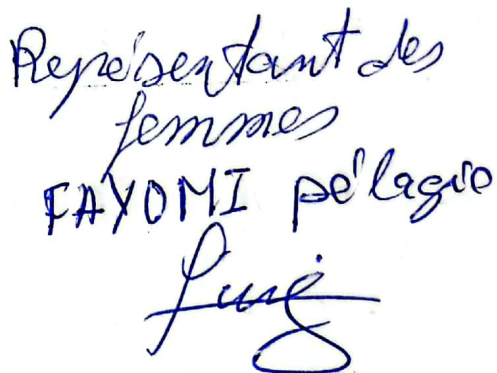 Représentant des
femmes
FAYOMI pélagie